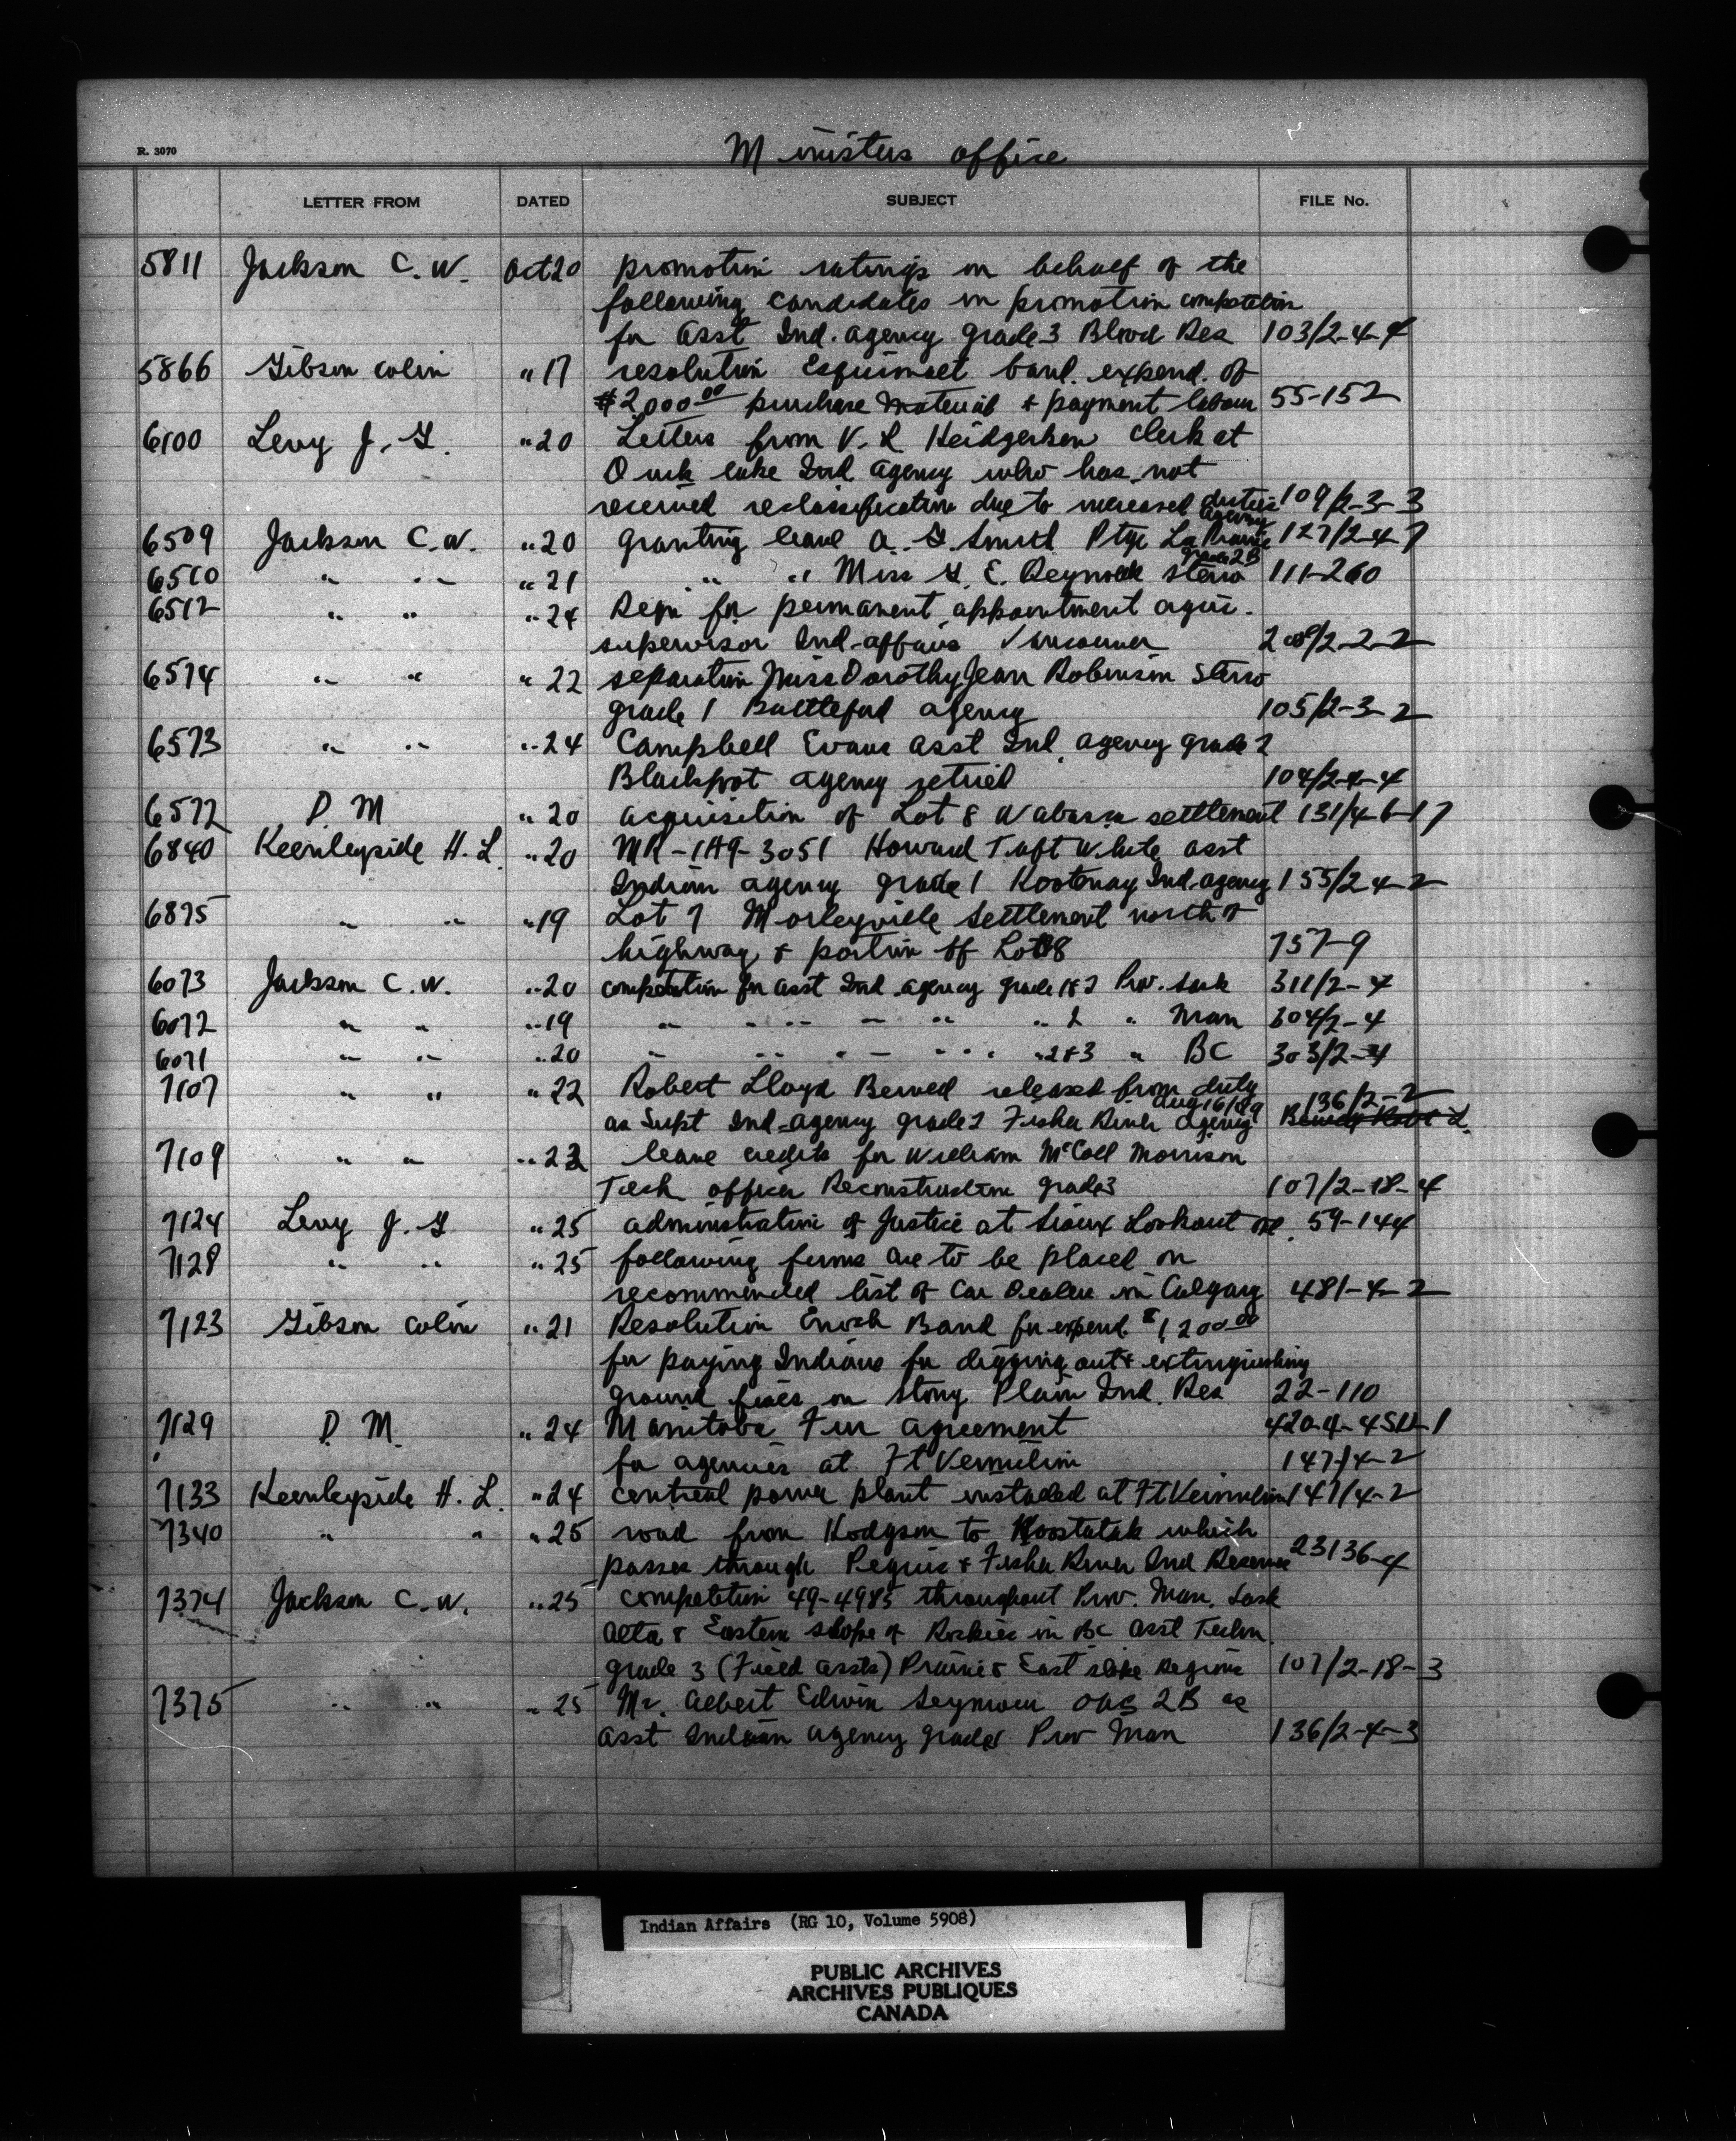 R. 3070
Ministers office
LETTER FROM DATED SUBJECT FILE No.
5811 Jackson C. W. Oct 20 promotion ratings on behalf of the
following candidates in promotion competition
for Asst Ind. agency grade 3 Blood Res 103/2-4-4
5866 Gibson Colin " 17 resolution Esquimalt band. expend. of
$2,000.00 purchase material & payment labour 55-152
6100 Levy J. G. " 20 Letters from V. R Heidgerken clerk at
Duck lake Ind agency who has not
received reclassification due to increased duties 109/2-3-3
6509 Jackson C. W. " 20 granting leave A. G. Smith Ptge La Prairie agency 127/2-4-7
6510 " " " 21 " " Miss G. E. Reynolds steno grade 2B 111-260
6512 " " " 24 Reqn for permanent appointment agric.
supervisor Ind-affairs Vancouver 208/2-2-2
6574 " " " 22 separation Miss Dorothy Jean Robinson Steno
grade 1 Battleford agency 105/2-3-2
6573 " " " 24 Campbell Evans Asst Ind. agency grade 2
Blackfoot agency retired 104/2-4-4
6572 D M " 20 acquisition of Lot 8 Wabasca settlement 131/4-6-17
6840 Keenleyside H. L. " 20 MR-149-3051 Howard Taft White asst
Indian agency grade 1 Kootenay Ind-agency 155/2 4-2
6875 " " " 19 Lot 7 Morleyville settlement north of
highway & portion of Lot 8 757-9
6073 Jackson C. W. " 20 competition for asst Ind agency grade 1 & 2 Prov. Sask 311/2-4
6072 " " " 19 " " " " " " 2 " Man 304/2-4
6071 " " " 20 " " " " " " 2 & 3 " BC 303/2-4
7107 " " " 22 Robert Lloyd released from duty Aug 16/49 136/2-2
as Supt Ind-agency grade 2 Fisher River agency
7109 " " " 22 leave credits for William McColl Morrison
Tech officer Reconstruction grade 3 107/2-18-4
7124 Levy J. G " 25 administration of Justice at Sioux Lookout 59-144
7128 " " " 25 following firms are to be placed on
recommended list of Car Dealers in Calgary 481-4-2
7123 Gibson Colin " 21 Resolution Enoch Band for expend. $1,200.00
for paying Indians for digging out & extinguishing
ground fires on Stony Plain Ind. Res 22-110
7129 D. M. " 24 Manitoba Fur agreement
for agencies at Ft Vermilion 147/4-2
7133 Keenleyside H. L. " 24 central power plant installed at Ft Vermilion 147/4-2
7340 " " " 25 road from Hodgson to Koostatak which
passes through Peguis & Fisher River Ind Reserves 23136-4
7374 Jackson C. W. " 25 competition 49-4985 throughout Prov. Man. Sask
Alta & Eastern slope of Rockies in BC Asst Techn.
grade 3 (Field assts) Prairie & East slope Regions 107/2-18-3
7375 " " " 25 Mr. Albert Edwin Seymour OAG 2B as
asst Indian agency grade 1 Prov Man 136/2-4-3
Indian Affairs (RG 10, Volume 5908)
PUBLIC ARCHIVES
ARCHIVES PUBLIQUES
CANADA